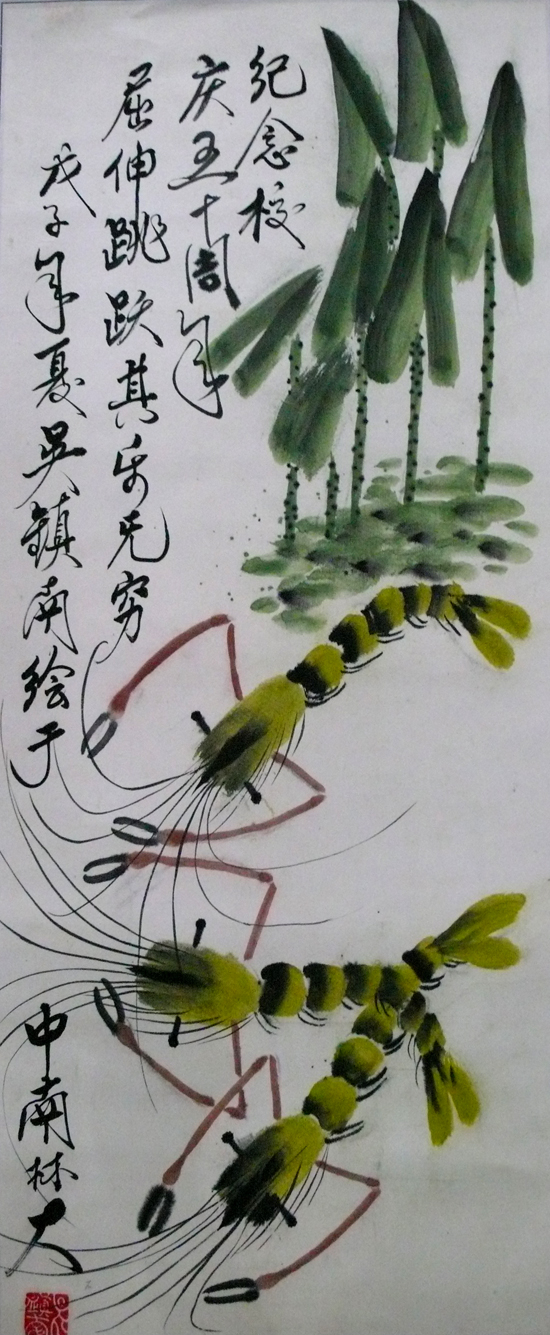 纪念校
庆五十周年
屈伸跳跃其乐无穷
戊子年夏吴镇南绘于
中南林大